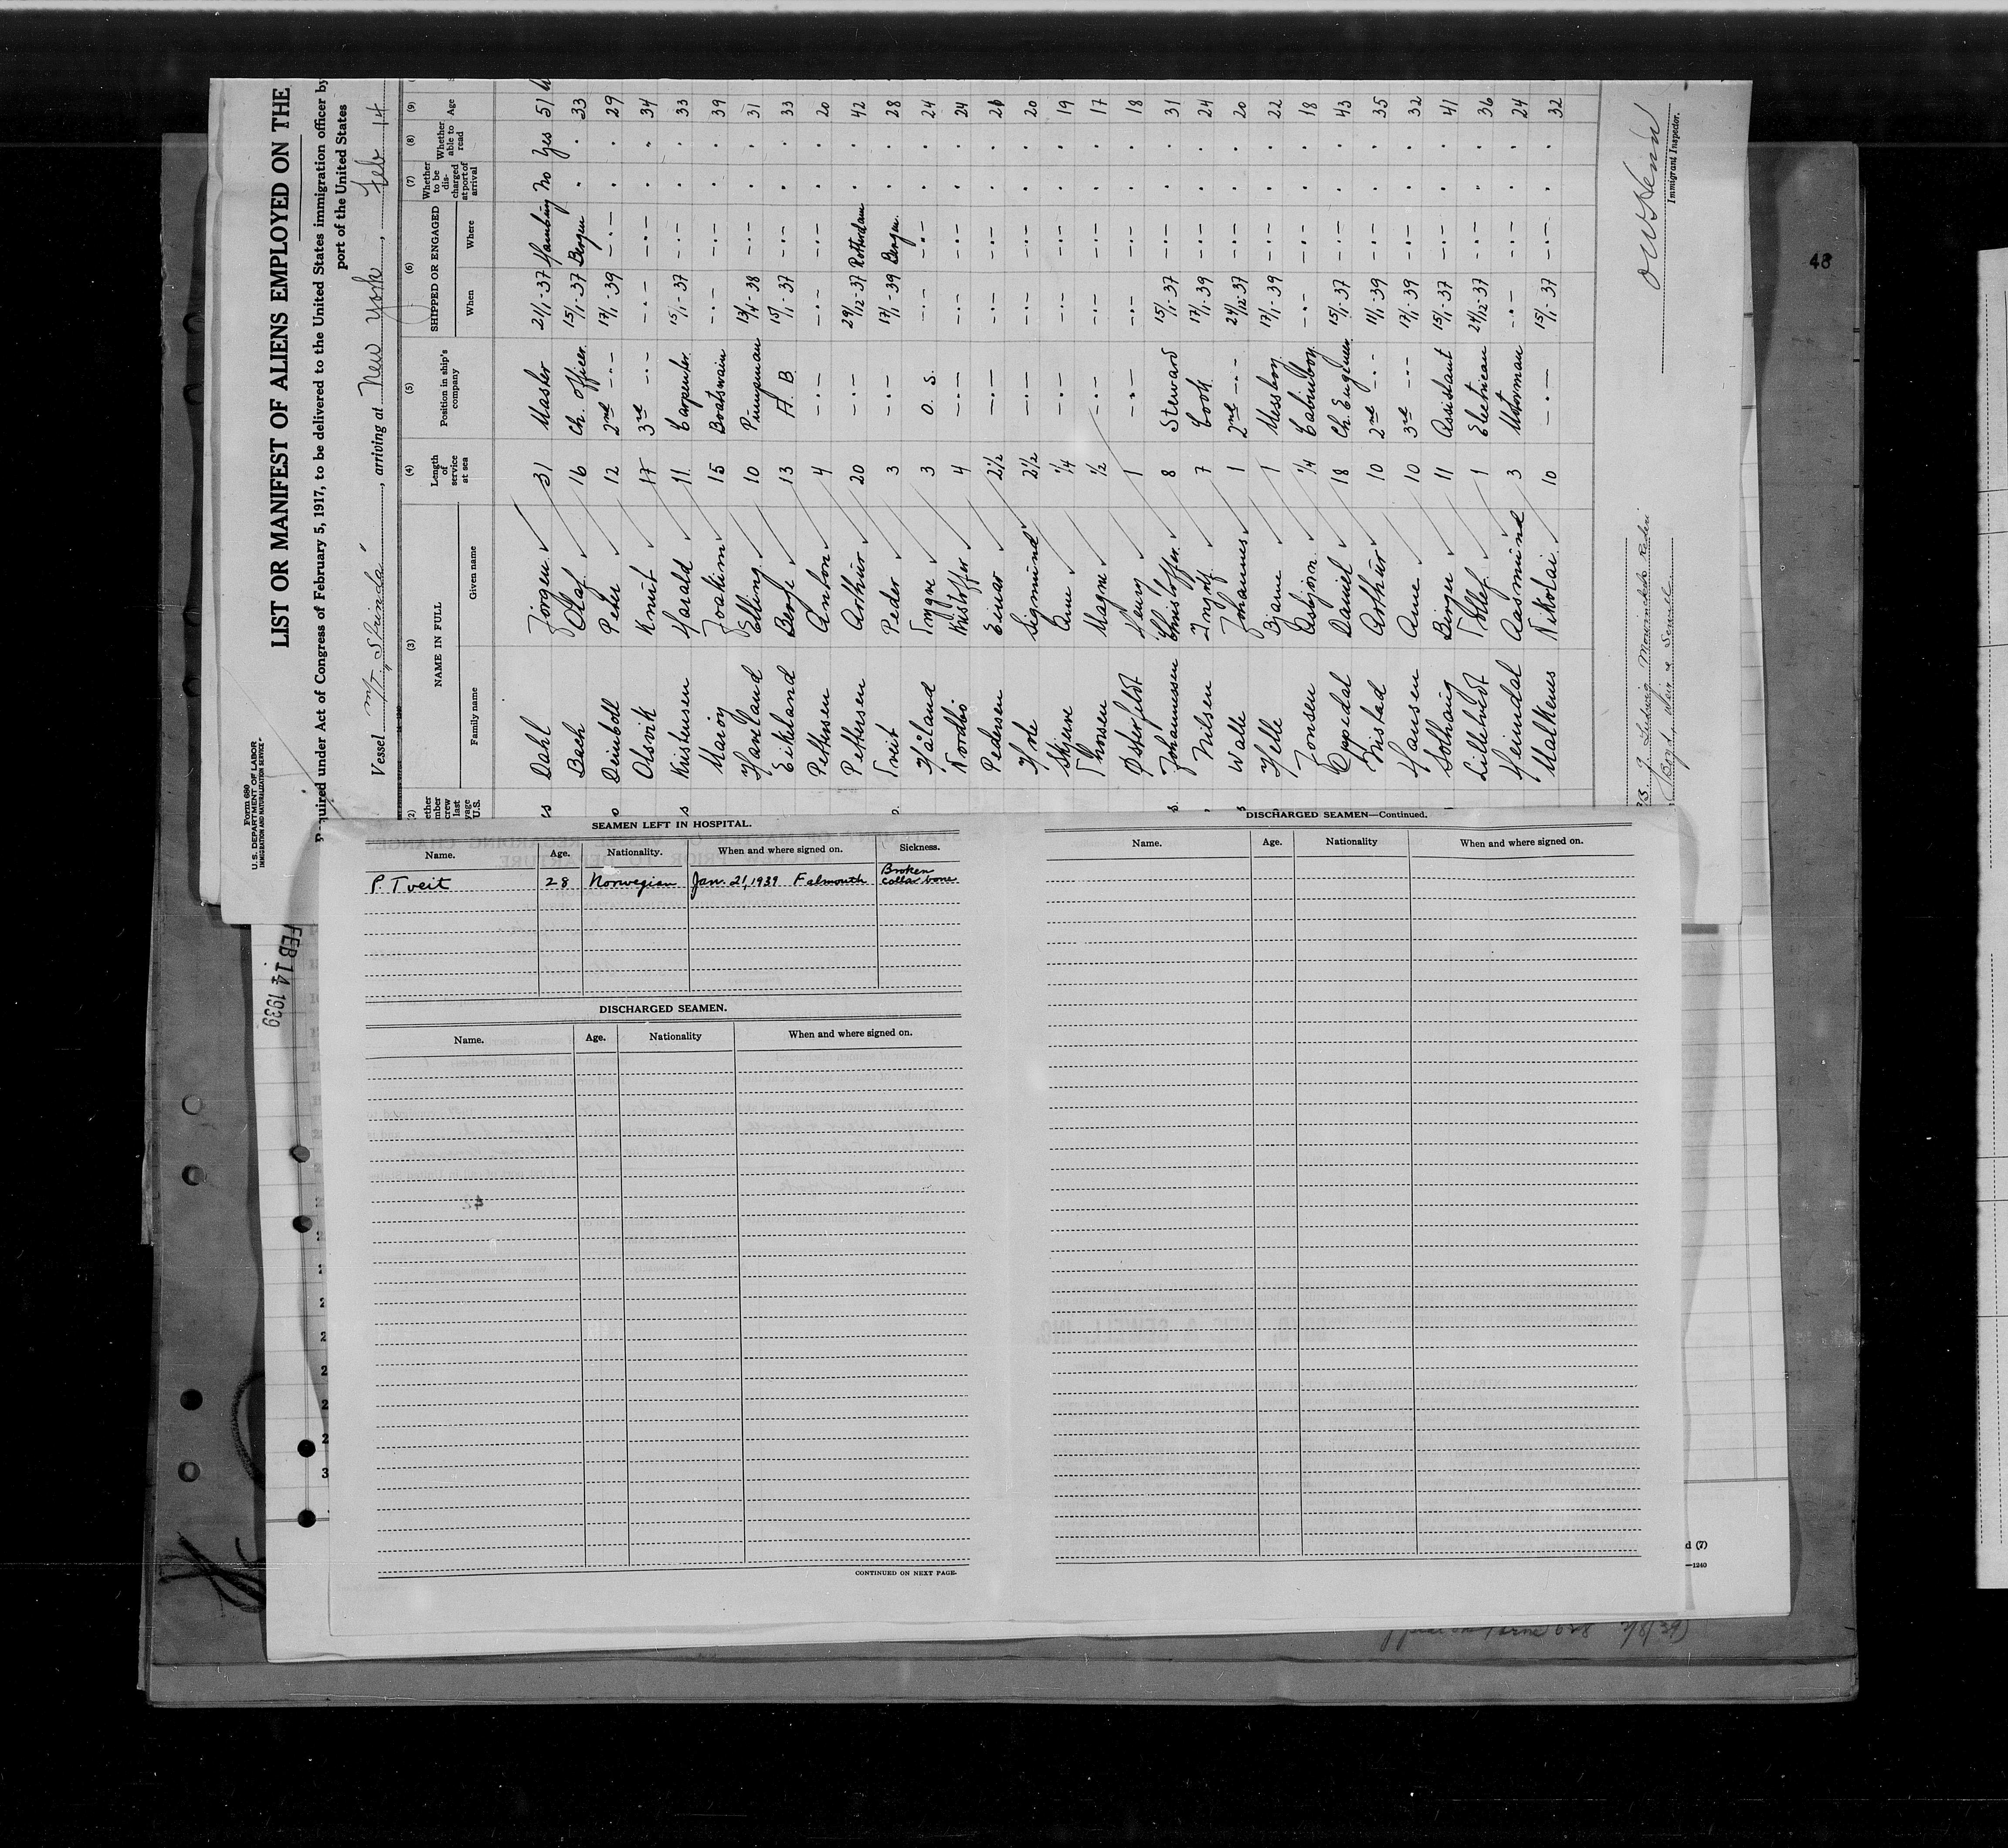 Form 680
U. S. DEPARTMENT OF LABOR
IMMIGRATION AND NATURALIZATION SERVICE
LIST OR MANIFEST OF ALIENS EMPLOYED ON THE
Required under Act of Congress of February 5, 1917, to be delivered to the United States immigration officer by
port of the United States
Vessel M/T "Strinda", arriving at New York, Feb 14
(2) (3) (4) (5) (6) (7) (8) (9)
NAME IN FULL
Family name Given name
Length of service at sea
Position in ship's company
SHIPPED OR ENGAGED
When Where
Whether to be discharged at port of arrival
Whether able to read
Age
Dahl Jörgen 31 Master 21/1-37 Hamburg No Yes 51
Bach Olaf 16 Ch. Officer 15/1-37 Bergen " " 33
Deinboll Peter 12 2nd -"- 17/1-39 -"- " " 29
Olsvik Knut 17 3rd -"- -"- -"- " " 34
Kristensen Harald 11 Carpenter 15/1-37 -"- " " 33
Joakim 15 Boatswain -"- -"- " " 39
Haveland Elling 10 Pumpman 13/4-38 -"- " " 31
Eikeland Berge 13 A. B. 15/1-37 -"- " " 33
Pettersen Anton 4 -"- -"- -"- " " 20
Pettersen Arthur 20 -"- 29/12-37 Rotterdam " " 42
Tveit Peder 3 -"- 17/1-39 Bergen " " 28
Håland Trygve 3 O. S. -"- -"- " " 24
Nordbö Kristoffer 4 -"- -"- -"- " " 24
Pedersen Einar 2½ -"- -"- -"- " " 21
Sigmund 2½ -"- -"- -"- " " 20
Skjerve Arne ¼ -"- -"- -"- " " 19
Thorsen Magne ½ -"- -"- -"- " " 17
Østerfeldt Henry 1 -"- -"- -"- " " 18
Johannessen Christoffer 8 Steward 15/1-37 -"- " " 31
Nilsen Ingolf 7 Cook 17/1-39 -"- " " 24
Walle Johannes 1 2nd -"- 24/12-37 -"- " " 20
Helle Bjarne 1 Messboy 17/1-39 -"- " " 22
Jonsen Asbjörn ¼ Cabinboy -"- -"- " " 18
Daniel 18 Ch. Engineer 15/1-37 -"- " " 43
Arthur 10 2nd -"- 11/1-39 -"- " " 35
Hansen Arne 10 3rd -"- 17/1-39 -"- " " 32
Solhaug Birger 11 Assistant 15/1-37 -"- " " 41
Lillehvidt 1 Electrician 24/12-37 -"- " " 36
Heimdal Aasmund 3 Motorman -"- -"- " " 24
Malkenes Nikolai 10 -"- 15/1-37 -"- " " 32
Ludwig Mowinckels Rederi
Boyd, Weir & Sewell
Immigrant Inspector.
48
FEB 14 1939
SEAMEN LEFT IN HOSPITAL.
Name. Age. Nationality. When and where signed on. Sickness.
P. Tveit 28 Norwegian Jan. 21, 1939 Falmouth Broken collar bone
DISCHARGED SEAMEN.
Name. Age. Nationality When and where signed on.
CONTINUED ON NEXT PAGE.
DISCHARGED SEAMEN—Continued.
Name. Age. Nationality When and where signed on.
d (7)
—1240